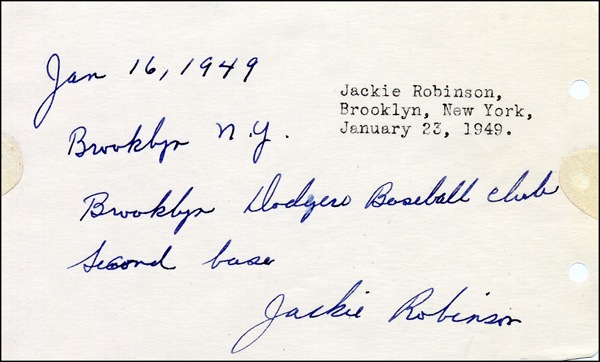 Jan 16, 1949
Jackie Robinson,
Brooklyn, New York,
January 23, 1949.
Brooklyn N.Y.
Brooklyn Dodgers Baseball club
Second base
Jackie Robinson